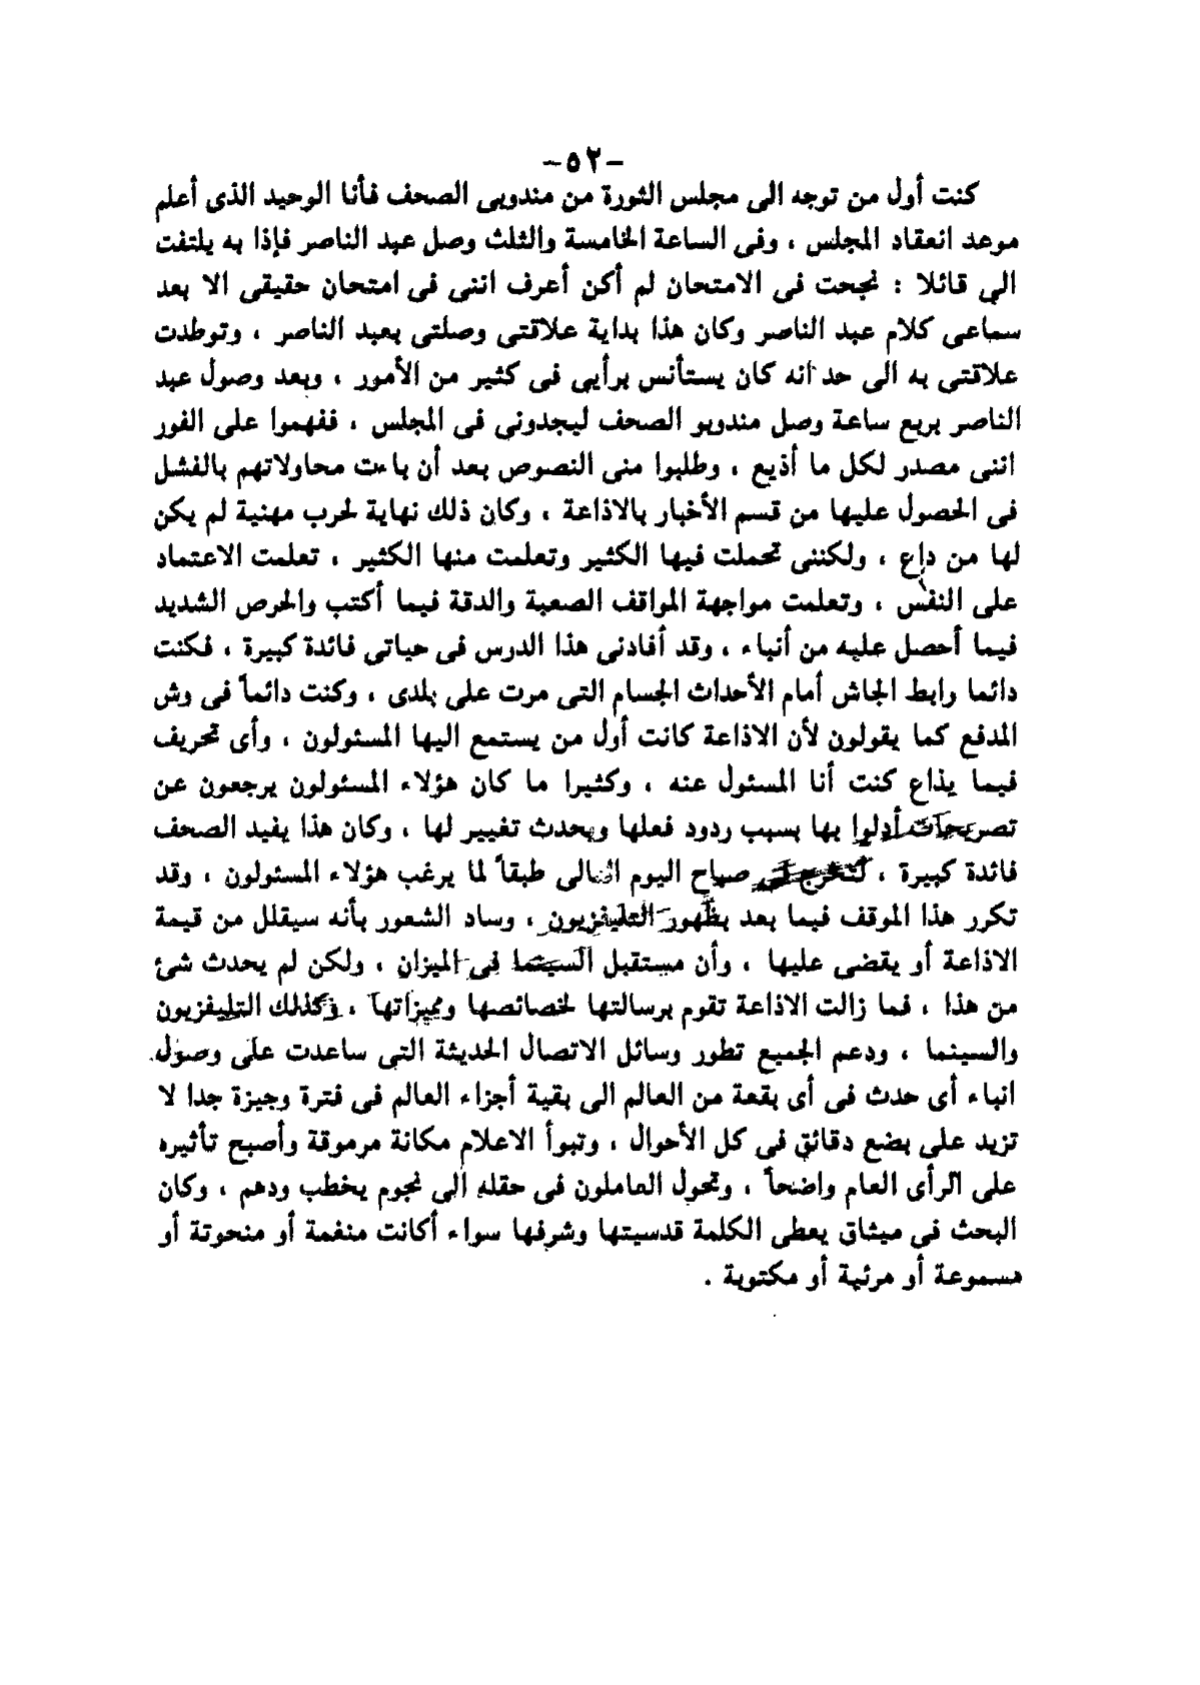 -٥٢-
كنت أول من توجه الى مجلس الثورة من مندوبى الصحف فأنا الوحيد الذى أعلم
موعد انعقاد المجلس ، وفى الساعة الخامسة والثلث وصل عبد الناصر فإذا به يلتفت
الى قائلا : نجحت فى الامتحان لم أكن أعرف اننى فى امتحان حقيقى الا بعد
سماعى كلام عبد الناصر وكان هذا بداية علاقتى وصلتى بعبد الناصر ، وتوطدت
علاقتى به الى حد انه كان يستأنس برأيى فى كثير من الأمور ، وبعد وصول عبد
الناصر بربع ساعة وصل مندوبو الصحف ليجدونى فى المجلس ، ففهموا على الفور
اننى مصدر لكل ما أذيع ، وطلبوا منى النصوص بعد أن باءت محاولاتهم بالفشل
فى الحصول عليها من قسم الأخبار بالاذاعة ، وكان ذلك نهاية لحرب مهنية لم يكن
لها من داع ، ولكننى تحملت فيها الكثير وتعلمت منها الكثير ، تعلمت الاعتماد
على النفس ، وتعلمت مواجهة المواقف الصعبة والدقة فيما أكتب والحرص الشديد
فيما أحصل عليه من أنباء ، وقد أفادنى هذا الدرس فى حياتى فائدة كبيرة ، فكنت
دائما رابط الجاش أمام الأحداث الجسام التى مرت على بلدى ، وكنت دائماً فى وش
المدفع كما يقولون لأن الاذاعة كانت أول من يستمع اليها المسئولون ، وأى تحريف
فيما يذاع كنت أنا المسئول عنه ، وكثيرا ما كان هؤلاء المسئولون يرجعون عن
تصريحات أدلوا بها بسبب ردود فعلها ويحدث تغيير لها ، وكان هذا يفيد الصحف
فائدة كبيرة ، لتخرج فى صباح اليوم التالى طبقاً لما يرغب هؤلاء المسئولون ، وقد
تكرر هذا الموقف فيما بعد بظهور التليفزيون ، وساد الشعور بأنه سيقلل من قيمة
الاذاعة أو يقضى عليها ، وأن مستقبل السينما فى الميزان ، ولكن لم يحدث شئ
من هذا ، فما زالت الاذاعة تقوم برسالتها لخصائصها ومميزاتها ، وكذلك التليفزيون
والسينما ، ودعم الجميع تطور وسائل الاتصال الحديثة التى ساعدت على وصول
انباء أى حدث فى أى بقعة من العالم الى بقية أجزاء العالم فى فترة وجيزة جدا لا
تزيد على بضع دقائق فى كل الأحوال ، وتبوأ الاعلام مكانة مرموقة وأصبح تأثيره
على الرأى العام واضحاً ، وتحول العاملون فى حقله الى نجوم يخطب ودهم ، وكان
البحث فى ميثاق يعطى الكلمة قدسيتها وشرفها سواء أكانت منغمة أو منحوتة أو
مسموعة أو مرئية أو مكتوبة .